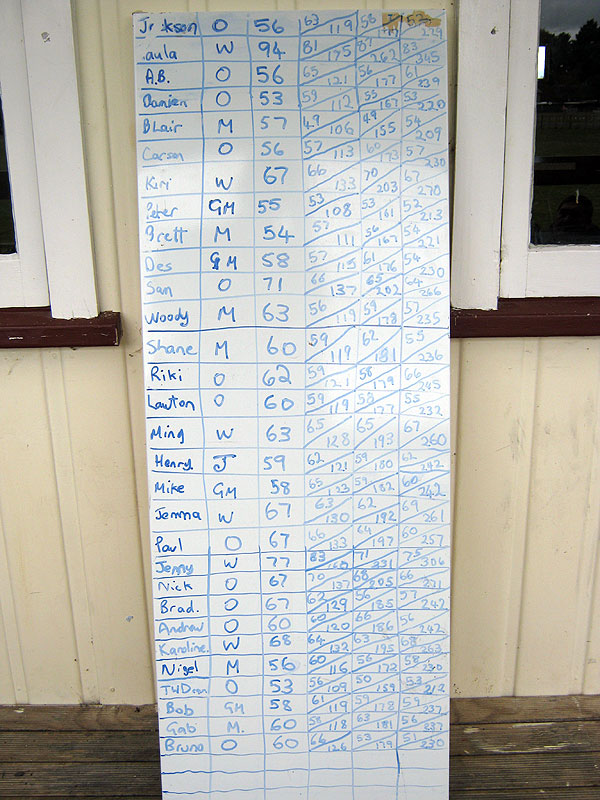 O 56 63 119 58
aula W 94 81 175 87 262 83 345
A.B. O 56 65 121 56 177 61 239
Damien O 53 59 112 55 167 53 220
Blair M 57 49 106 49 155 54 209
Carson O 56 57 113 60 173 57 230
Kiri W 67 66 133 70 203 67 270
Peter GM 55 53 108 53 161 52 213
Brett M 54 57 111 56 167 54 221
Des GM 58 57 115 61 176 54 230
San O 71 66 137 65 202 64 266
Woody M 63 56 119 59 178 57 235
Shane M 60 59 119 62 181 55 236
Riki O 62 59 121 58 179 66 245
Lawton O 60 59 119 58 177 55 232
Ming W 63 65 128 65 193 67 260
Henry J 59 62 121 59 180 62 242
Mike GM 58 65 123 59 182 60 242
Jemma W 67 63 130 62 192 69 261
Paul O 67 66 133 64 197 60 257
Jenny W 77 83 160 71 231 75 306
Nick O 67 70 137 68 205 66 271
Brad. O 67 62 129 56 185 57 242
Andrew O 60 60 120 66 186 56 242
Karoline. W 68 64 132 63 195 68 263
Nigel M 56 60 116 56 172 58 230
O 53 56 109 50 159 53 212
Bob GM 58 61 119 59 178 59 237
Gab M. 60 58 118 63 181 56 237
Bruno O 60 66 126 53 179 51 230